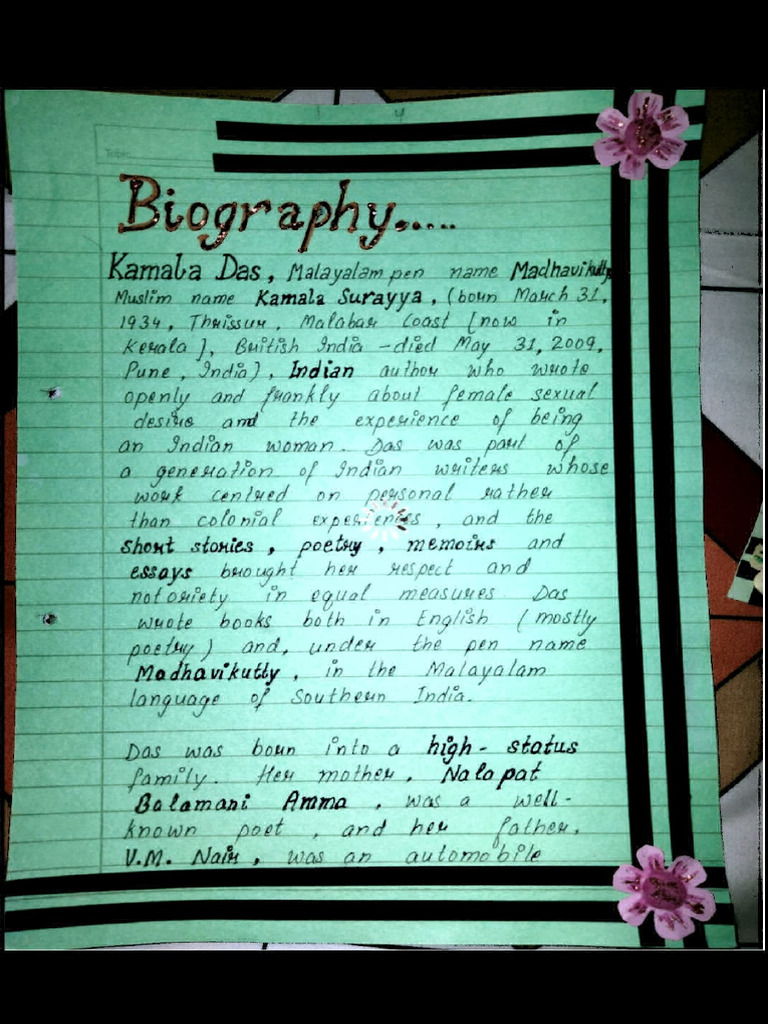 Biography.....
Kamala Das, Malayalam pen name Madhavikutty,
Muslim name Kamala Surayya, (born March 31,
1934, Thrissur, Malabar Coast [now in
Kerala], British India - died May 31, 2009,
Pune, India), Indian author who wrote
openly and frankly about female sexual
desire and the experience of being
an Indian woman. Das was part of
a generation of Indian writers whose
work centred on personal rather
than colonial experiences, and the
short stories, poetry, memoirs and
essays brought her respect and
notoriety in equal measures. Das
wrote books both in English (mostly
poetry) and, under the pen name
Madhavikutty, in the Malayalam
language of Southern India.
Das was born into a high-status
family. Her mother, Nalapat
Balamani Amma, was a well-
known poet, and her father,
V.M. Nair, was an automobile